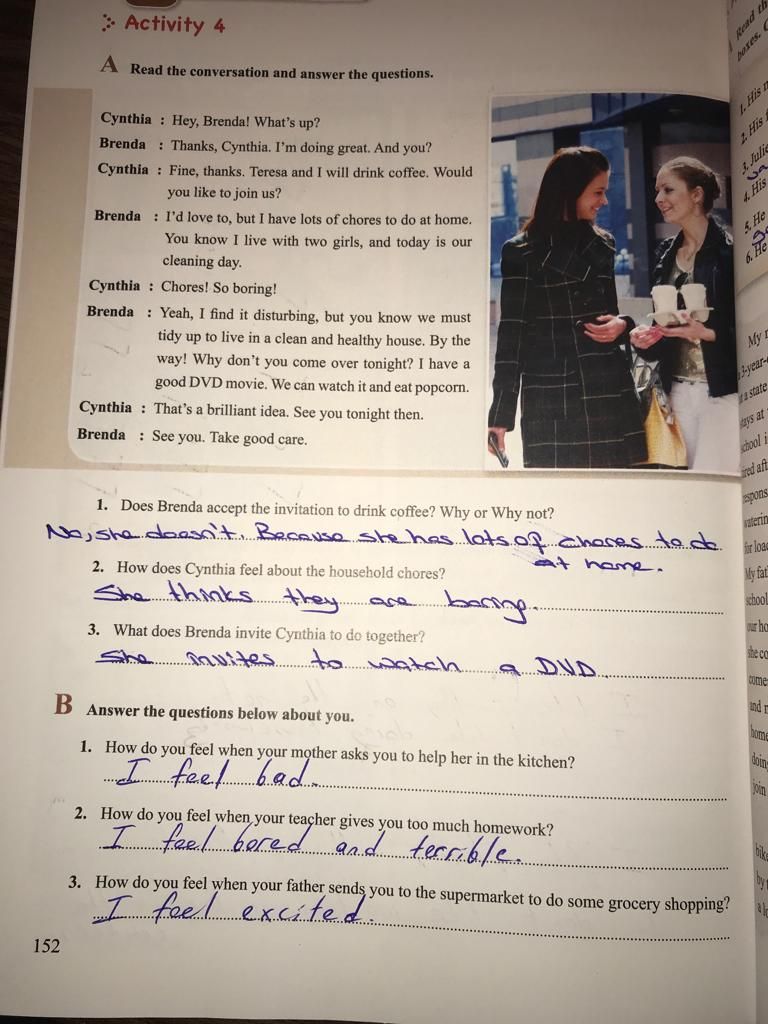 Activity 4
A Read the conversation and answer the questions.
Cynthia : Hey, Brenda! What's up?
Brenda : Thanks, Cynthia. I'm doing great. And you?
Cynthia : Fine, thanks. Teresa and I will drink coffee. Would
you like to join us?
Brenda : I'd love to, but I have lots of chores to do at home.
You know I live with two girls, and today is our
cleaning day.
Cynthia : Chores! So boring!
Brenda : Yeah, I find it disturbing, but you know we must
tidy up to live in a clean and healthy house. By the
way! Why don't you come over tonight? I have a
good DVD movie. We can watch it and eat popcorn.
Cynthia : That's a brilliant idea. See you tonight then.
Brenda : See you. Take good care.
1. Does Brenda accept the invitation to drink coffee? Why or Why not?
No, she doesn't. Because she has lots of chores to do
at home.
2. How does Cynthia feel about the household chores?
She thinks they are boring.
3. What does Brenda invite Cynthia to do together?
She invites to watch a DVD
B Answer the questions below about you.
1. How do you feel when your mother asks you to help her in the kitchen?
I feel bad.
2. How do you feel when your teacher gives you too much homework?
I feel bored and terrible.
3. How do you feel when your father sends you to the supermarket to do some grocery shopping?
I feel excited.
152
Read th
boxes.
1. His
2. His
3. Julie
4. His
5. He
6. He
My
3-year-
a state
stays at
school i
respons
waterin
for loa
My fat
school
our ho
she co
comes
and
home
doin
join
bike
by
a lo